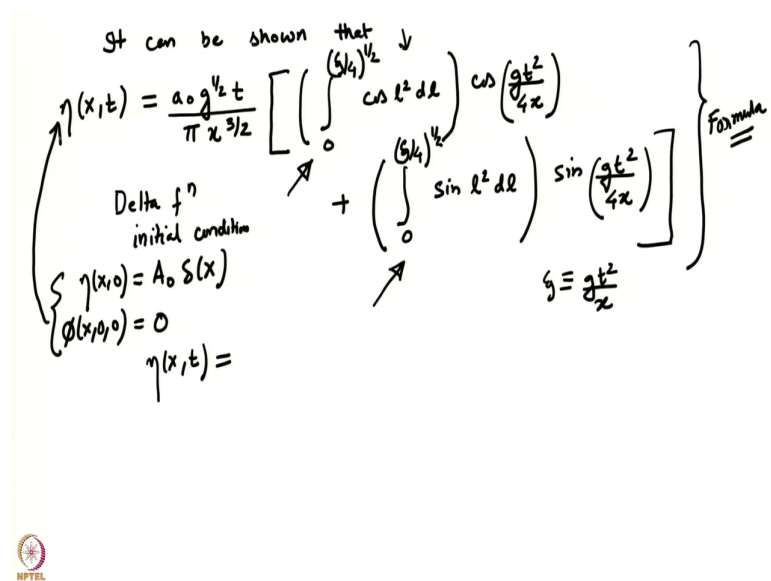 It can be shown that ↓
η(x,t) = a₀ g^{1/2} t / π x^{3/2} [ ( ∫₀^{(ξ/4)^{1/2}} cos l² dl ) cos (gt²/4x)
+ ( ∫₀^{(ξ/4)^{1/2}} sin l² dl ) sin (gt²/4x) ] } Formula
Delta fⁿ
initial condition
ξ ≡ gt²/x
{ η(x,0) = A₀ δ(x)
ϕ(x,0,0) = 0
η(x,t) =
NPTEL